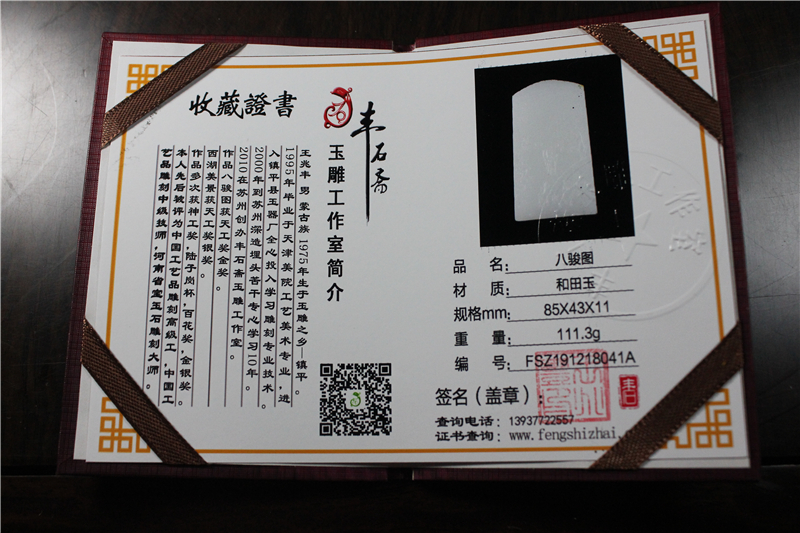 收藏證書
丰石斋
玉雕工作室简介
王兆丰 男 蒙古族 1975年生于玉雕之乡—镇平。
1995年毕业于天津美院工艺美术专业，进
入镇平县玉器厂全心投入学习雕刻专业技术。
2000年到苏州深造埋头苦干专心学习10年。
2010在苏州创办丰石斋玉雕工作室。
作品八骏图获天工奖金奖。
西湖美景获天工奖银奖。
作品多次获神工奖，陆子岗杯，百花奖，金银奖。
本人先后被评为中国工艺品雕刻高级工，中国工
艺品雕刻中级技师，河南省宝玉石雕刻大师。
品 名: 八骏图
材 质: 和田玉
规格mm: 85X43X11
重 量: 111.3g
编 号: FSZ191218041A
签名（盖章）:
查询电话: 13937722557
证书查询: www.fengshizhai.